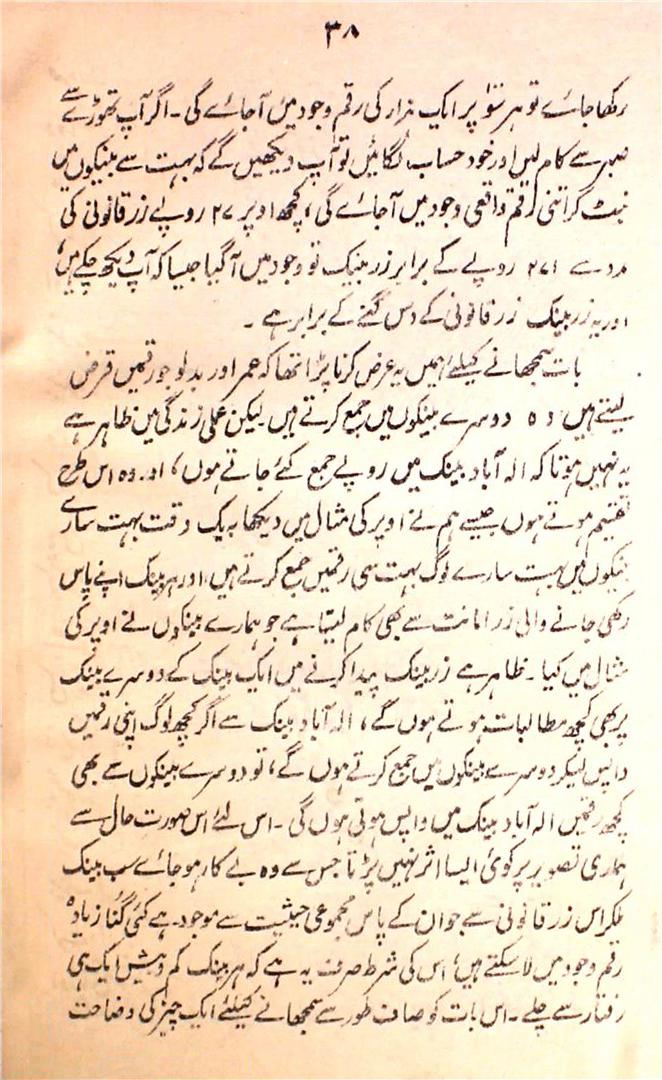 ۳۸
رکھا جائے تو ہر سَو پر ایک ہزار کی رقم وجود میں آجائے گی ۔ اگر آپ تھوڑے سے
صبر سے کام لیں اور خود حساب لگائیں تو آپ دیکھیں گے کہ بہت سے بینکوں میں
بٹ کر اتنی رقم واقعی وجود میں آجائے گی، کچھ اوپر ۲۷ روپے زر قانونی کی
مدد سے ۲۷۱ روپے کے برابر زر بینک تو وجود میں آگیا جیسا کہ آپ دیکھ چکے ہیں،
اور یہ زر بینک زر قانونی کے دس گنے کے برابر ہے ۔
بات سمجھانے کیلئے ہمیں یہ عرض کرنا پڑا تھا کہ عمر اور بدلو جو رقمیں قرض
لیتے ہیں وہ دوسرے بینکوں میں جمع کرتے ہیں لیکن عملی زندگی میں ظاہر ہے
یہ نہیں ہوتا کہ الہ آباد بینک میں روپے جمع کئے جاتے ہوں، اور وہ اس طرح
تقسیم ہوتے ہوں جیسے ہم نے اوپر کی مثال میں دیکھا بیک وقت بہت سارے
بینکوں میں بہت سارے لوگ بہت سی رقمیں جمع کرتے ہیں، اور ہر بینک اپنے پاس
رکھی جانے والی زر امانت سے بھی کام لیتا ہے جو ہمارے بینکوں نے اوپر کی
مثال میں کیا ۔ ظاہر ہے زر بینک پیدا کرنے میں ایک بینک کے دوسرے بینک
پر بھی کچھ مطالبات ہوتے ہوں گے، الہ آباد بینک سے اگر کچھ لوگ اپنی رقمیں
واپس لیکر دوسرے بینکوں میں جمع کرتے ہوں گے، تو دوسرے بینکوں سے بھی
کچھ رقمیں الہ آباد بینک میں واپس ہوتی ہوں گی ۔ اس لئے اس صورت حال سے
ہماری تصویر پر کوئی ایسا اثر نہیں پڑتا جس سے وہ بے کار ہو جائے سب بینک
ملکر اس زر قانونی سے جو ان کے پاس مجموعی حیثیت سے موجود ہے کئی گنا زیادہ
رقم وجود میں لا سکتے ہیں، اس کی شرط صرف یہ ہے کہ ہر بینک کم و بیش ایک ہی
رفتار سے چلے ۔ اس بات کو صاف طور سے سمجھانے کیلئے ایک چیز کی وضاحت